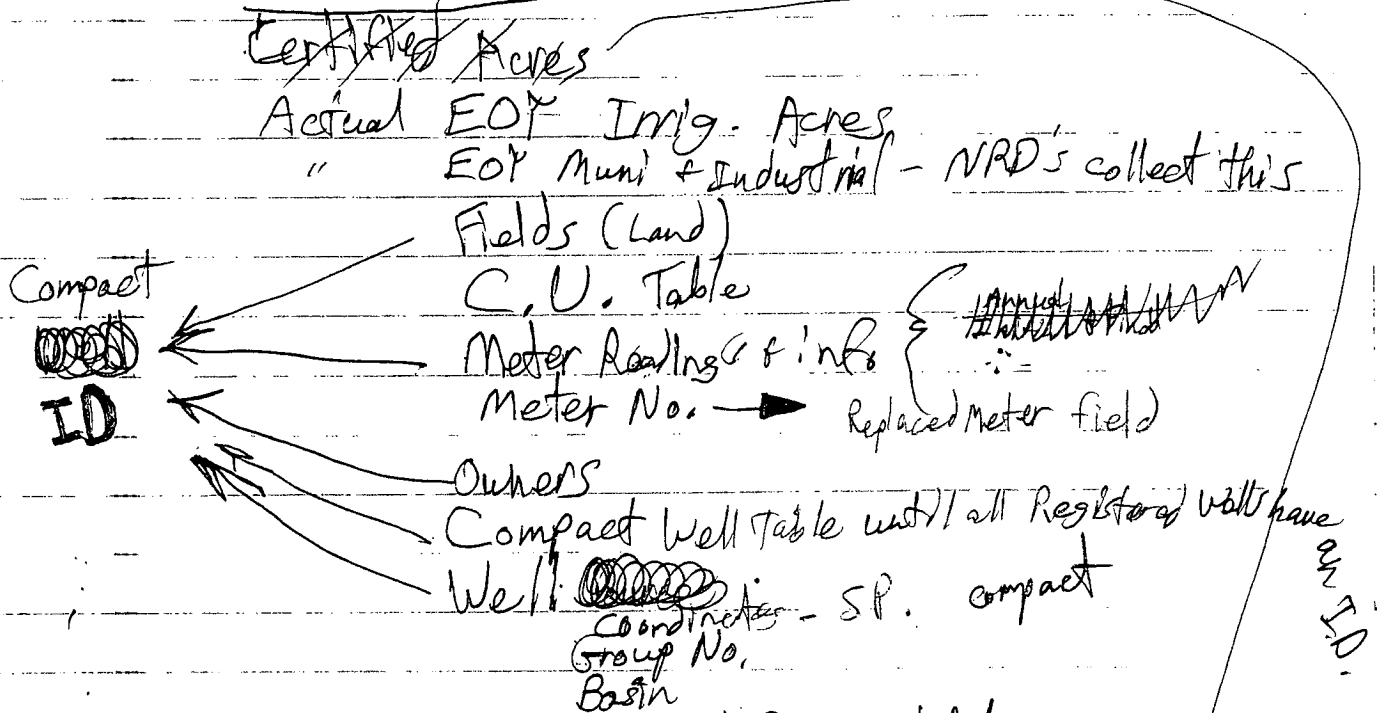 Certified Acres
Actual EOY Irrig. Acres
" EOY Muni + Industrial - NRD's collect this
Fields (Land)
Compact
C. U. Table
Annual
Meter Readings + info
ID
Meter No. → Replaced Meter field
Owners
Compact Well Table until all Registered Wells have an I.D.
Well
Coordinates - SP. compact
Group No.
Basin